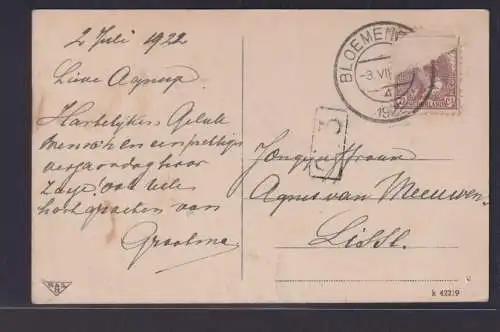 2 Juli 1922
Lieve Agnes
Hartelijken
mensch en een prettige
verjaardag hoor
ook vele
hart groeten van
Grootma
BLOEMEN
-3.VII
4
192
NEDERLAND
3
Jongejuffrouw
Agnes van Meeuwen
Lisse.
k 42219